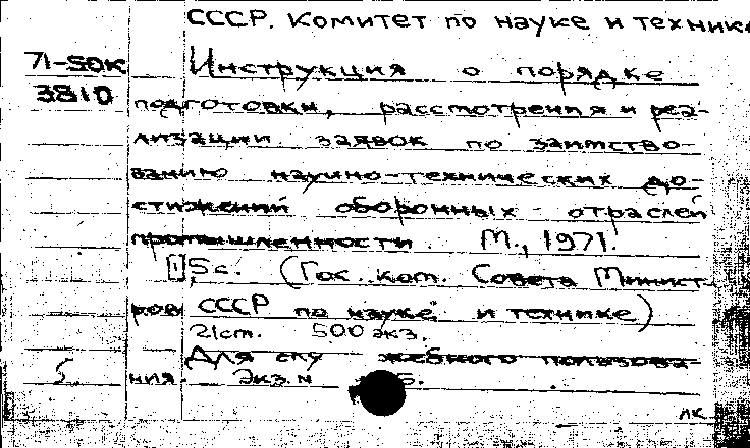 СССР. Комитет по науке и технике
71-50К Инструкция о порядке
3810 подготовки, рассмотрения и реа-
лизации заявок по заимство-
ванию научно-технических до-
стижений оборонных отраслей
промышленности. М., 1971.
15 с. (Гос. ком. Совета Минист-
ров СССР по науке и технике)
21см. 500 экз.
Для слу жебного пользова-
5 ния. Экз. N 5.
лк